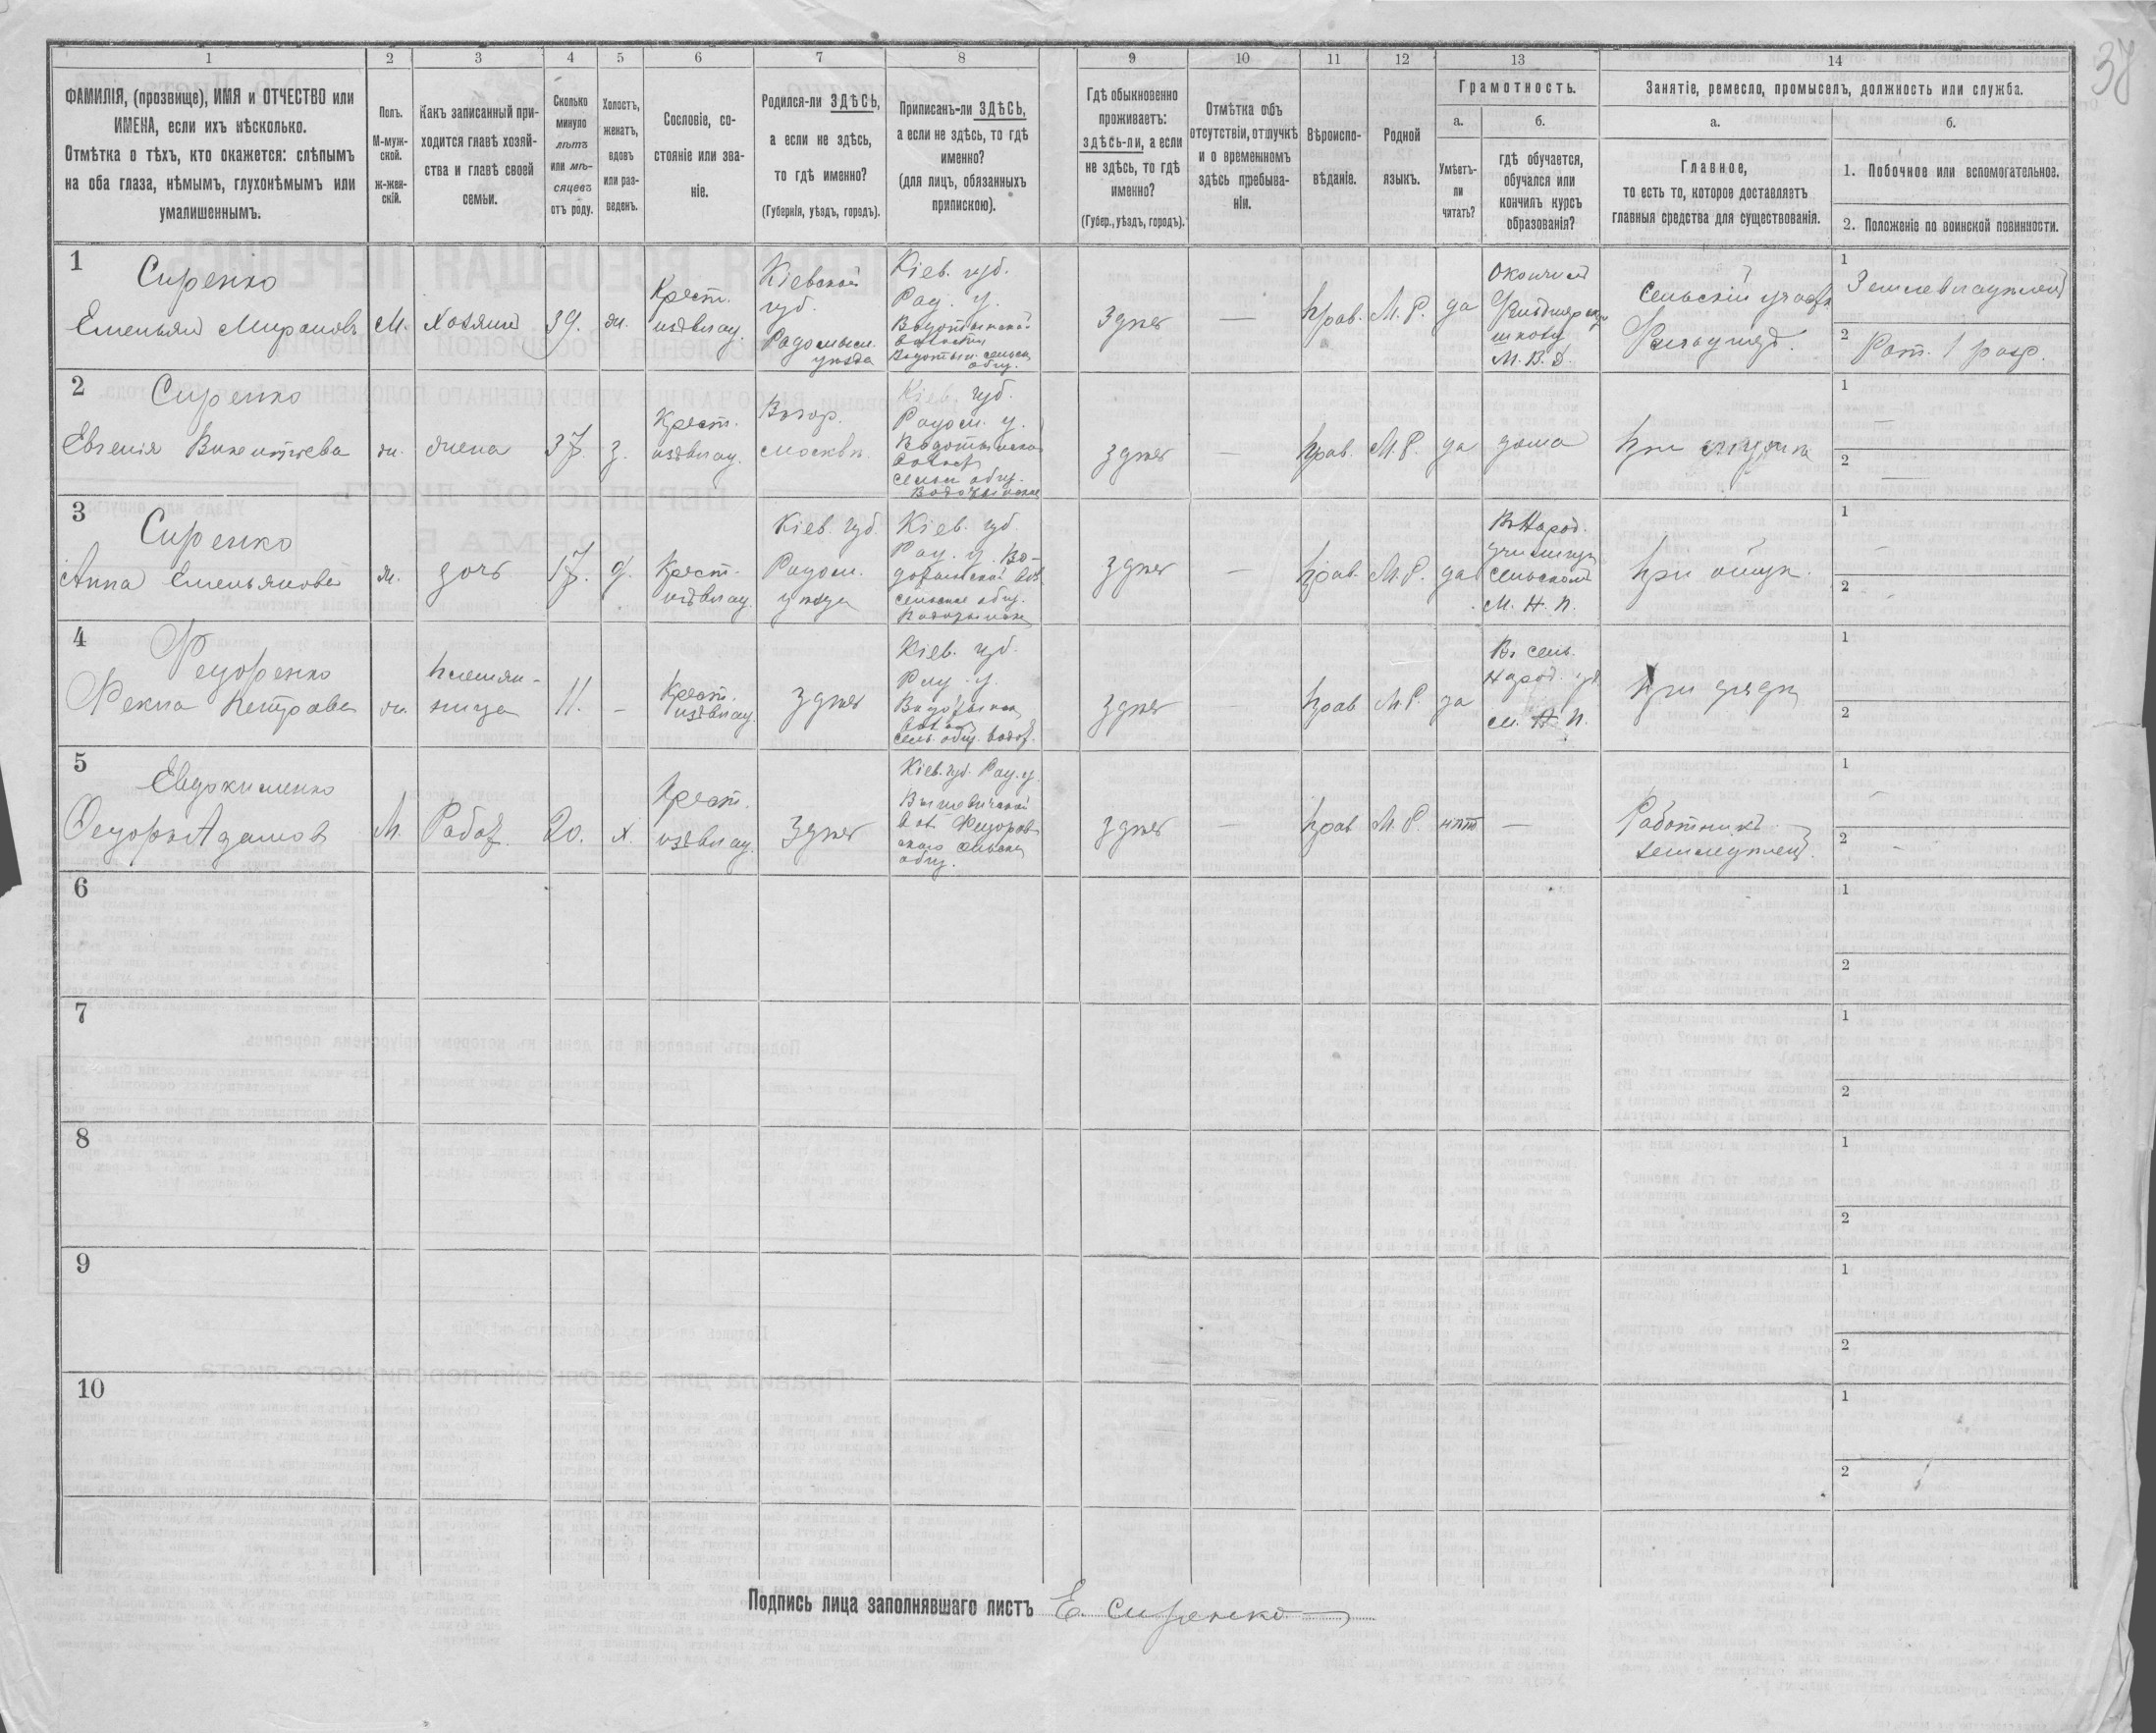 38
1 2 3 4 5 6 7 8 9 10 11 12 13 14
ФАМИЛІЯ, (прозвище), ИМЯ и ОТЧЕСТВО или
ИМЕНА, если ихъ нѣсколько.
Отмѣтка о тѣхъ, кто окажется: слѣпымъ
на оба глаза, нѣмымъ, глухонѣмымъ или
умалишеннымъ.
Полъ.
М-муж-
ской.
ж-жен-
скій.
Какъ записанный при-
ходится главѣ хозяй-
ства и главѣ своей
семьи.
Сколько
минуло
лѣтъ
или мѣ-
сяцевъ
отъ роду.
Холостъ,
женатъ,
вдовъ
или раз-
веденъ.
Сословіе, со-
стояніе или зва-
ніе.
Родился-ли ЗДѢСЬ,
а если не здѣсь,
то гдѣ именно?
(Губернія, уѣздъ, городъ).
Приписанъ-ли ЗДѢСЬ,
а если не здѣсь, то гдѣ
именно?
(для лицъ, обязанныхъ
припискою).
Гдѣ обыкновенно
проживаетъ:
здѣсь-ли, а если
не здѣсь, то гдѣ
именно?
(Губер., уѣздъ, городъ).
Отмѣтка объ
отсутствіи, отлучкѣ
и о временномъ
здѣсь пребыва-
ніи.
Вѣроиспо-
вѣданіе.
Родной
языкъ.
Грамотность.
а.
Умѣетъ-
ли
читать?
б.
гдѣ обучается,
обучался или
кончилъ курсъ
образованія?
Занятіе, ремесло, промыселъ, должность или служба.
а.
Главное,
то есть то, которое доставляетъ
главныя средства для существованія.
б.
1. Побочное или вспомогательное.
2. Положеніе по воинской повинности.
1
Сиренко
Емельян Мироновъ
М.
Хозяинъ
39.
ж.
Крест.
изъ влад.
Кіевской
губ.
Радомысл.
уѣзда
Кіев. губ.
Рад. у.
Водотыйской
волости
Водотыи. сельск.
общ.
здѣсь
—
прав.
М. Р.
да
Окончил
Фельдшерскую
школу
М. В. Д.
Сельскій участк.
Фельдшер.
1
Земледѣлие
2
Рат. 1 разр.
2
Сиренко
Евгенія Викентіева
ж.
жена
37.
з.
Крест.
изъ влад.
Въ гор.
Москвѣ.
Кіев. губ.
Радом. у.
Водотыйской
волост
сельск. общ.
Водотыйск
здѣсь
—
прав.
М. Р.
да
дома
при мужѣ
1
—
2
3
Сиренко
Анна Емельянова
ж.
дочь
17.
д.
Крест.
изъ влад.
Кіев. губ.
Радом.
уѣзда
Кіев. губ.
Рад. у. Во-
дотыйской вол.
сельское общ.
Водотыйск
здѣсь
—
прав.
М. Р.
да
Въ Народ.
училищѣ
сельском
М. Н. П.
при отцѣ.
1
—
2
4
Федоренко
Фекла Петрова
ж.
племян-
ница
11.
–
Крест.
изъ влад.
здѣсь
Кіев. губ.
Рад. у.
Водотыйск
волост
сель. общ. Водот.
здѣсь
прав
М. Р.
да
Въ сель.
Народ. уч.
М. Н. П.
при дядѣ
1
2
5
Евдокименко
Федоръ Адамов
М.
Работ.
20.
х.
Крест.
изъ влад.
здѣсь
Кіев. губ. Рад. у.
Вышевичской
вол. Федоров-
ского сельск
общ.
здѣсь
—
прав
М. Р.
нѣт
—
Работникъ
земледѣлец.
1
2
6
1
2
7
1
2
8
1
2
9
1
2
10
1
2
Подпись лица заполнявшаго листъ Е. Сиренко